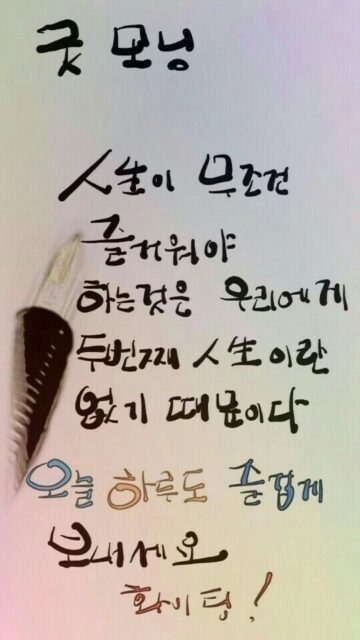 굿 모닝
人生이 무조건
즐거워야
하는것은 우리에게
두번째 人生이란
없기 때문이다
오늘 하루도 즐겁게
보내세요
화이팅!